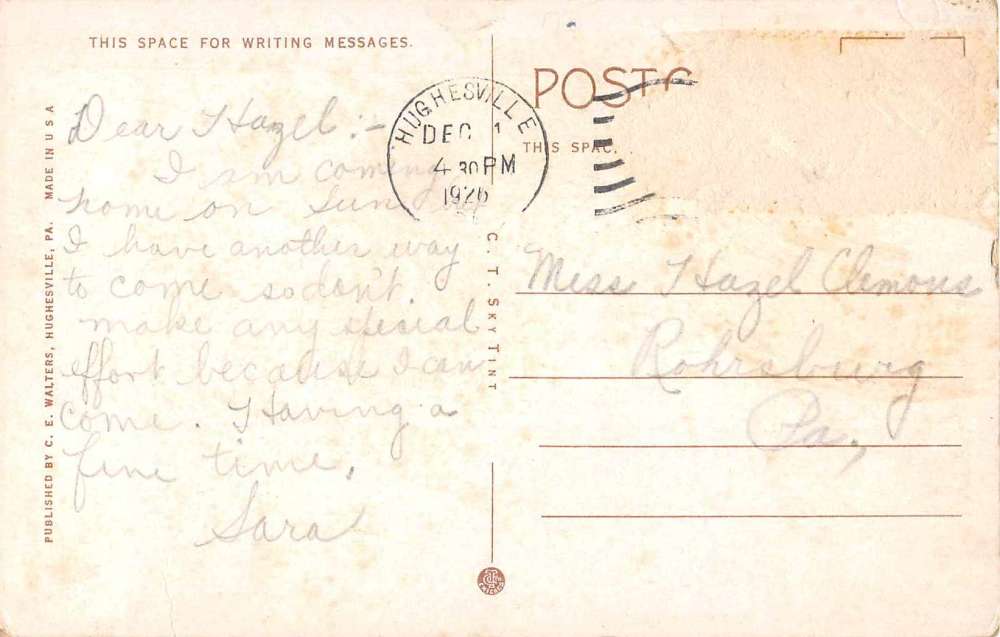 THIS SPACE FOR WRITING MESSAGES.
Dear Hazel:-
I am coming
home on Sun
I have another way
to come so don't.
make any special
effort because I can
come. Having a
fine time.
Sara
PUBLISHED BY C. E. WALTERS, HUGHESVILLE, PA. MADE IN U S A
C. T. SKYTINT
HUGHESVILLE
DEC 1
4 30 PM
1926
POSTC
THIS SPAC
Miss Hazel Clemons
Rohrsburg
Pa,